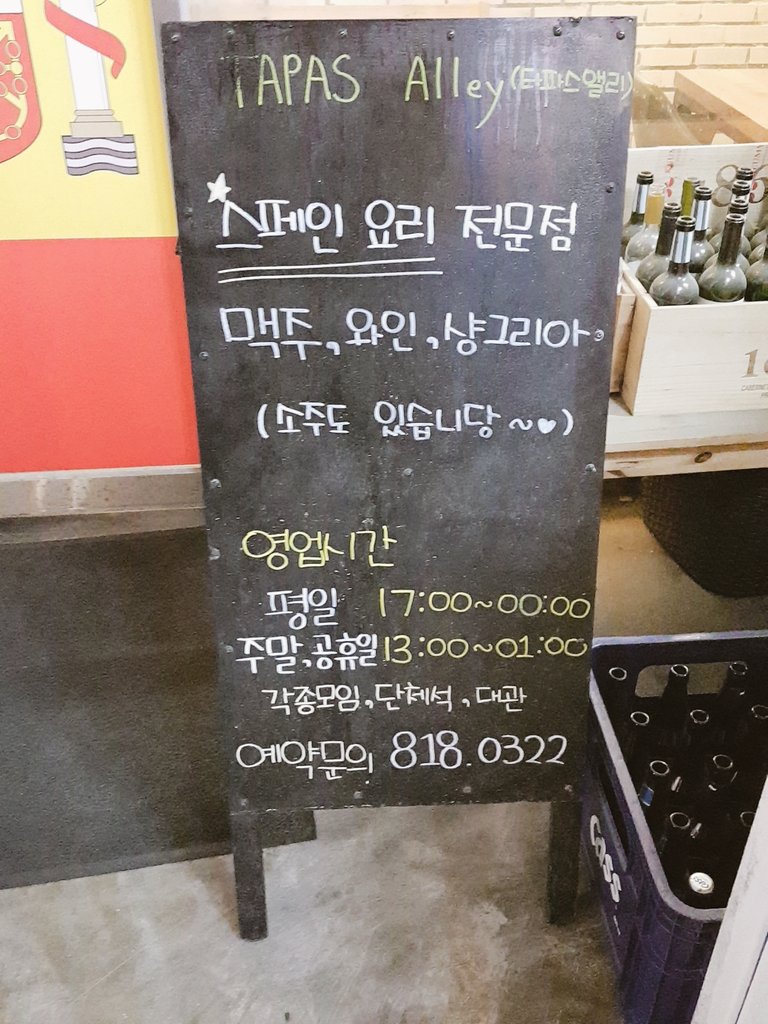 TAPAS Alley (타파스앨리)
스페인 요리 전문점
맥주, 와인, 샹그리아
(소주도 있습니당 ~♥)
영업시간
평일 17:00~00:00
주말,공휴일 13:00~01:00
각종모임, 단체석, 대관
예약문의 818.0322
Cass